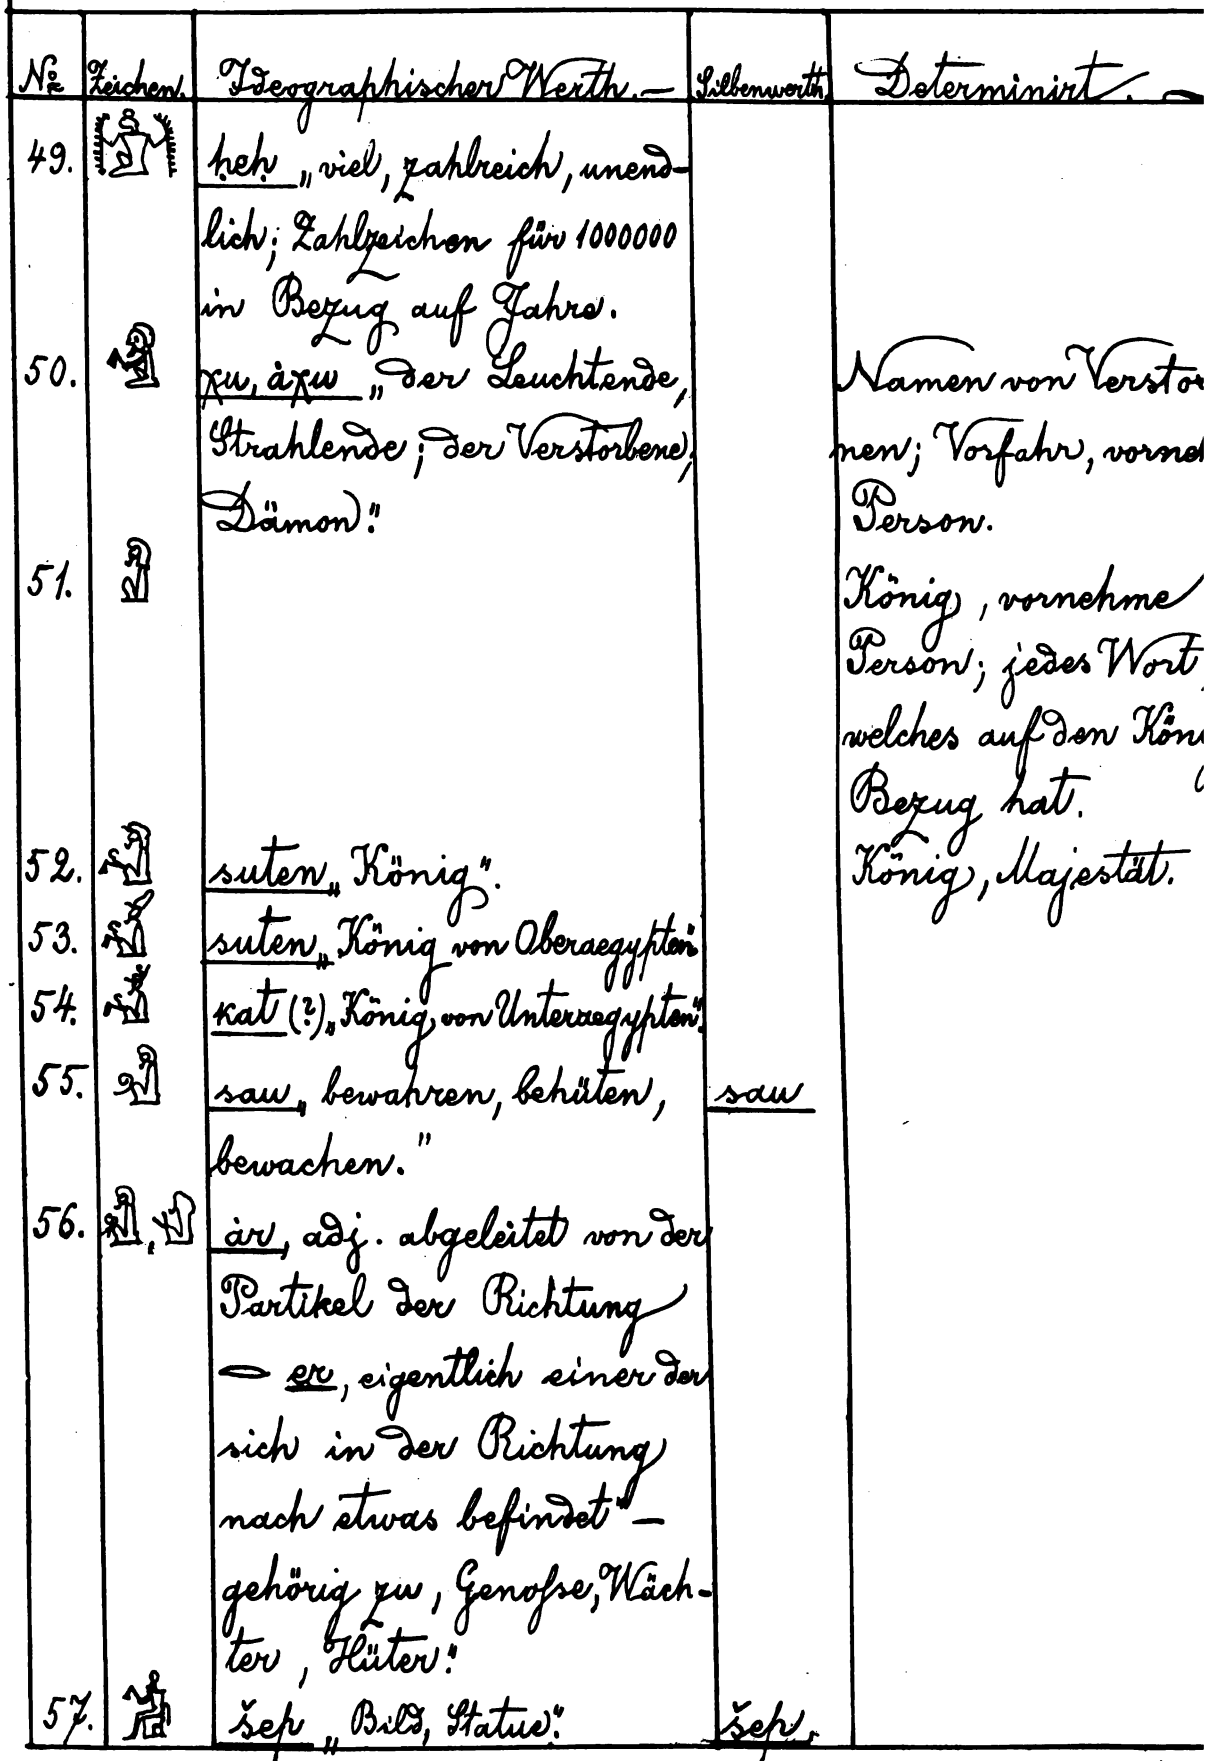 No Zeichen. Ideographischer Werth. — Silbenwerth. Determinirt. —
49. ḥeḥ „viel, zahlreich, unend-
lich; Zahlzeichen für 1000000
in Bezug auf Jahre.
50. χu, ȧχu „der Leuchtende, Namen von Verstor
Strahlende; der Verstorbene, nen; Vorfahr, vorneh
Dämon". Person.
51. König, vornehme
Person; jedes Wort,
welches auf den Köni
Bezug hat.
52. suten „König". König, Majestät.
53. suten „König von Oberaegypten"
54. kat (?) „König von Unteraegypten".
55. sau „bewahren, behüten, sau
bewachen."
56. ȧr, adj. abgeleitet von der
Partikel der Richtung
𓂋 er, eigentlich einer der
sich in der Richtung
nach etwas befindet" —
gehörig zu, Genosse, Wäch-
ter, Hüter".
57. šep „Bild, Statue". šep.